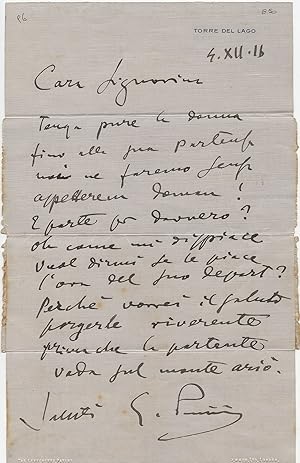 96
TORRE DEL LAGO
4.XII.16
Cara Signorina
Tenga pure la donna
fino alla sua partenza
noi ne faremo senza
aspetterem doman!
E parte per davvero?
oh come mi dispiace
vuol dirmi se le piace
l'ora del suo depart?
Perchè vorrei il saluto
porgerle riverente
prima che la partente
vada sul monte
Saluti G. Puccini